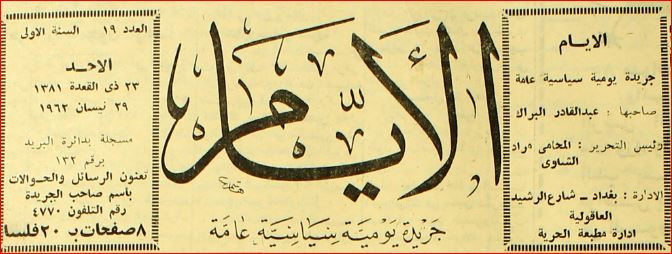 الايام
جريدة يومية سياسية عامة
صاحبها : عبدالقادر البراك
رئيس التحرير : المحامى مراد
الشاوى
الادارة : بغداد ــ شارع الرشيد
العاقولية
ادارة مطبعة الحرية
الأيام
جريدة يومية سياسية عامة
العدد ١٩ السنة الاولى
الاحد
٢٣ ذى القعدة ١٣٨١
٢٩ نيسان ١٩٦٢
مسجلة بدائرة البريد
برقم ١٣٢
تعنون الرسائل والحوالات
باسم صاحب الجريدة
رقم التلفون ٤٧٧٠
٨ صفحات ب ٢٠ فلسا